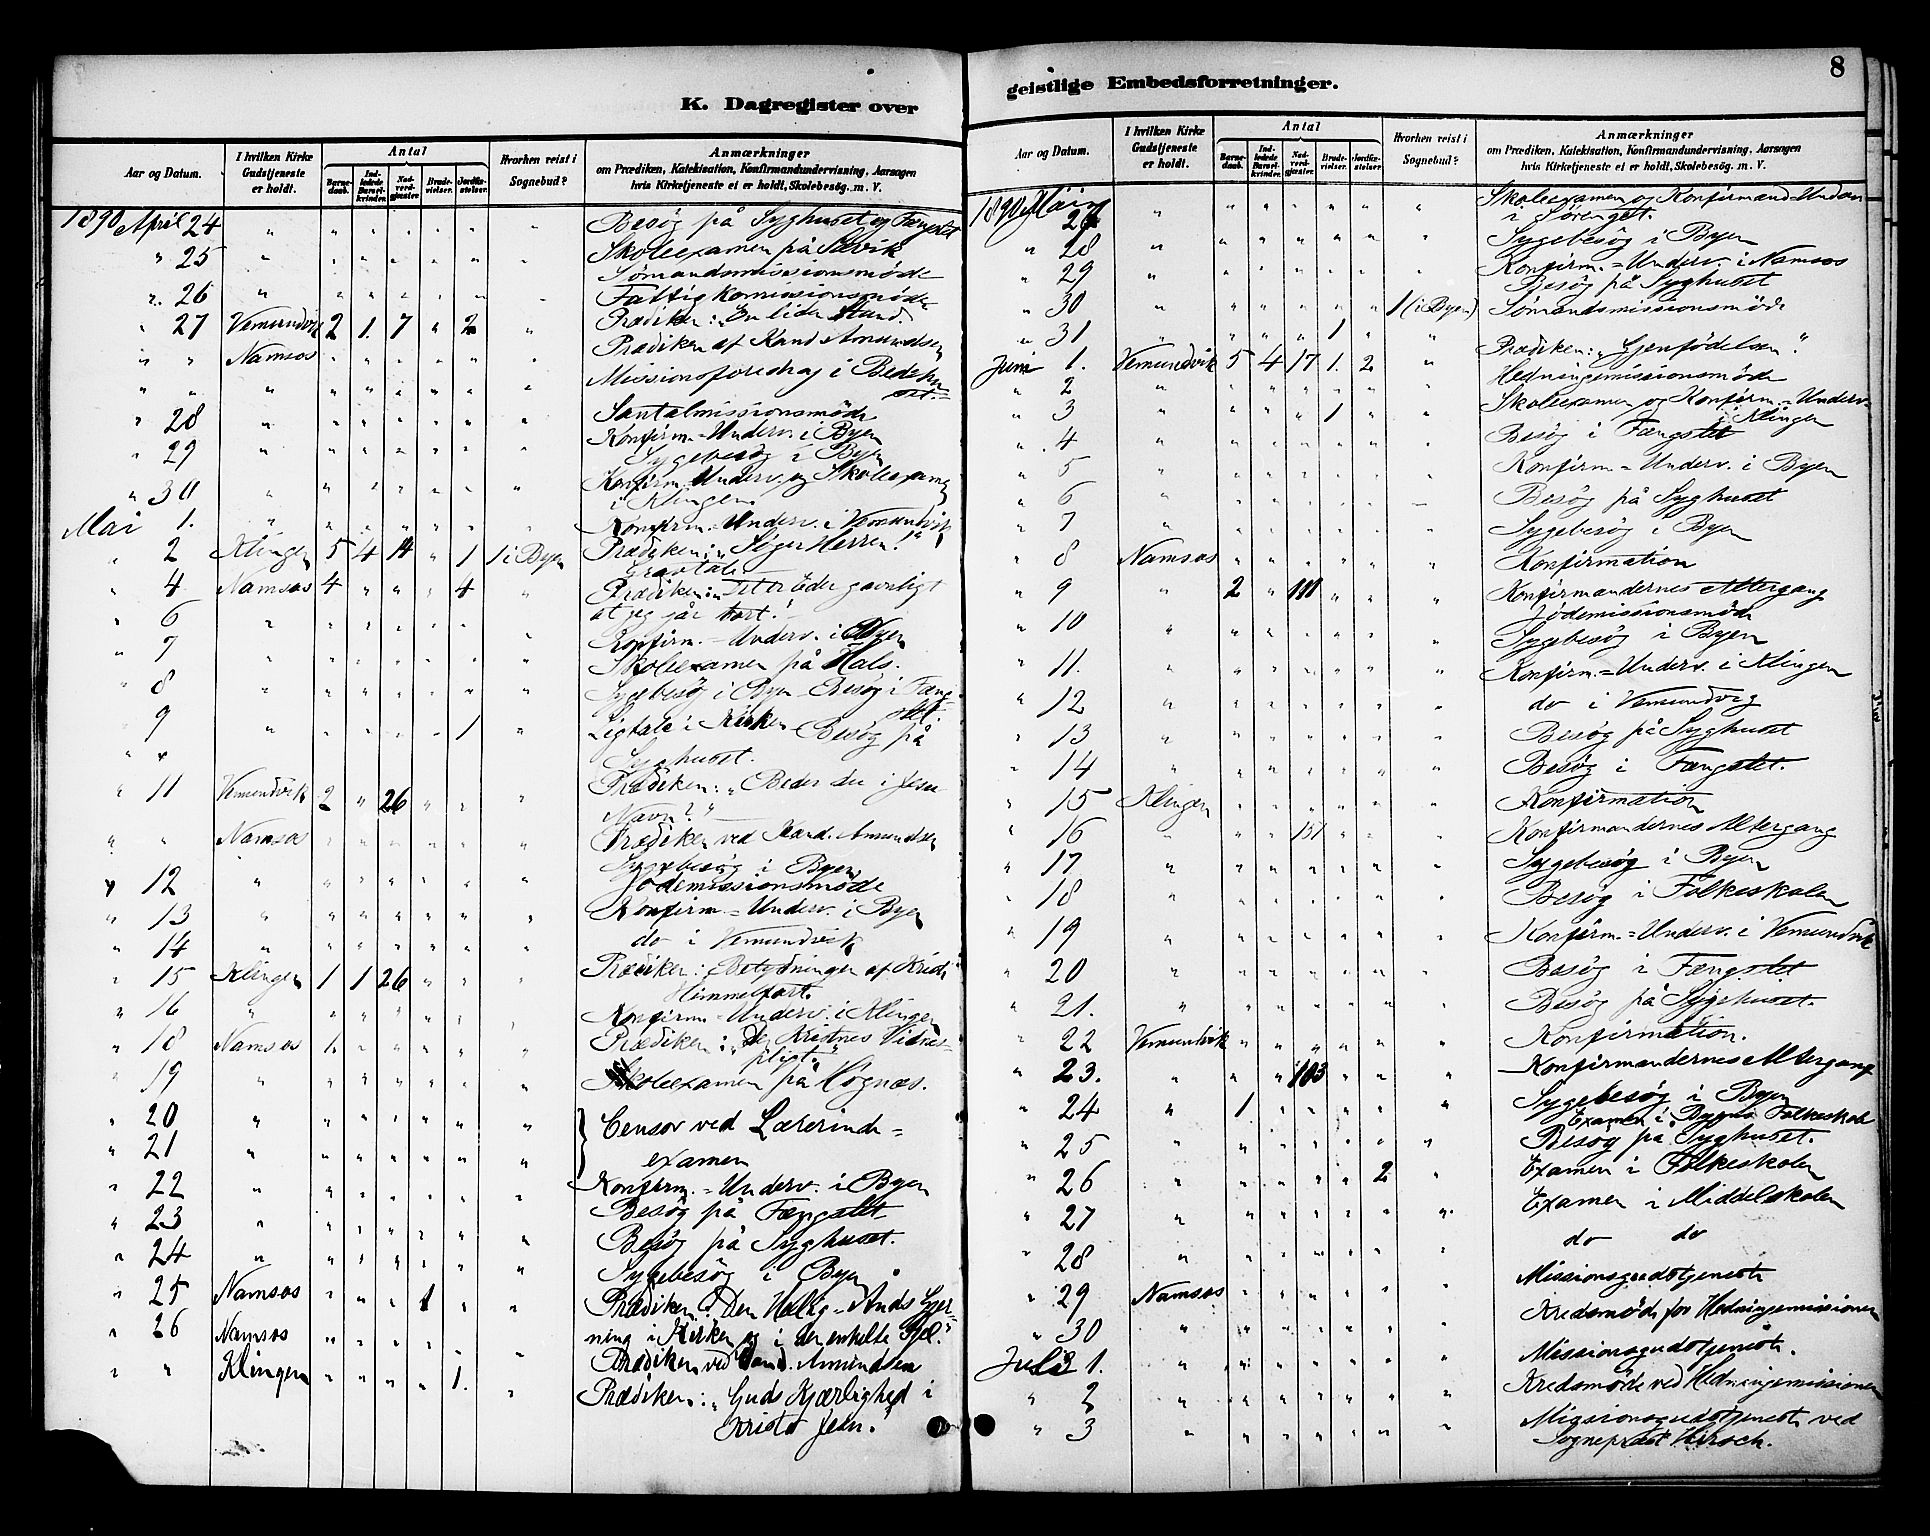 K. Dagregister over
Aar og Datum.
I hvilken Kirke Gudstjeneste er holdt.
Antal
Barnedaab.
Indledede Barselkvinder.
Nadverdgjester.
Brudevielser.
Jordfæstelser.
Hvorhen reist i Sognebud?
Anmærkninger
om Prædiken, Katekisation, Konfirmandundervisning, Aarsagen
hvis Kirketjeneste ei er holdt, Skolebesøg. m. V.
1890 April 24 " " " " " " " Besøg på Syghuset og Fængslet
" 25 " " " " " " " Skoleexamen på
Sømandsmissionsmøde
" 26 " " " " " " " Fattigkomissionsmøde
" 27 Vemundvik 2 1. 7 " 2 " Prædiken: "En liden Stund."
" " Namsos " " " " " " Prædiken af Kand Amundsen
" " " " " " " " " Missionsforedrag i Bedehu
set.
" 28 " " " " " " " Santalmissionsmøde
Konfirm.=Underv. i Byen
" 29 " " " " " " " Sygebesøg i Byen
" 30 " " " " " " " Konfirm. Underv. og Skoleexamen
i Klingen
Mai 1. " " " " " " " Konfirm.=Underv. i Vemundvik
" 2 Klingen 5 4 14 " 1 1 i Byen Prædiken: "Søger Herren!"
Gravtale
" 4 Namsos 4 " " " 4 " Prædiken: "Det er Eder gavnligt
at jeg går bort."
" 6 " " " " " " " Konfirm.=Underv. i Byen
" 7 " " " " " " " Skoleexamen på Hals.
" 8 " " " " " " " Sygebesøg i Byen Besøg i Fæng-
slet.
" 9 " " " " " 1 " Ligtale i Kirken Besøg på
" " Syghuset.
" 11 Vemundvik 2 " 26 " " " Prædiken: "Beder du i Jesu
Navn?"
" " Namsos " " " " " " Prædiken ved Kand. Amundsen
Sygebesøg i Byen
" 12 " " " " " " " Jødemissionsmøde
" 13 " " " " " " " Konfirm.=Underv. i Byen
" 14 " " " " " " " do i Vemundvik
" 15 Klingen 1 1 26 " " " Prædiken: Betydningen af Kristi
Himmelfart.
" 16 " " " " " " " Konfirm=Underv. i Klingen
" 18 Namsos " " " " " Prædiken: "De Kristnes Vidnes-
pligt."
" 19 " " " " " " " Skoleexamen på Høgnæs.
" 20 " " " " " " " Censor ved Lærerinde=
" 21 " " " " " " " examen
" 22 " " " " " " " Konfirm.=Underv. i Byen
" 23 " " " " " " " Besøg på Fængslet
" 24 " " " " " " " Besøg på Syghuset.
Sygebesøg i Byen
" 25 Namsos " " " 1 " " Prædiken: Den Hellig-Ands Gjer-
ning i Kirken og i den enkelte Sjel."
" 26 Namsos " " " " " " Prædiken ved Cand. Amundsen
" " Klingen " " " " 1. " Prædiken: "Guds Kjærlighed i
Kristo Jesu."
geistlige Embedsforretninger.
8
Aar og Datum.
I hvilken Kirke Gudstjeneste er holdt.
Antal
Barnedaab.
Indledede Barselkvinder.
Nadverdgjester.
Brudevielser.
Jordfæstelser.
Hvorhen reist i Sognebud?
Anmærkninger
om Prædiken, Katekisation, Konfirmandundervisning, Aarsagen
hvis Kirketjeneste ei er holdt, Skolebesøg. m. V.
1890 Mai " " " " " " " Skoleexamen og Konfirmand-Underv
i Sørenget.
" 28 " " " " " " " Sygebesøg i Byen
" 29 " " " " " " " Konfirm.=Underv. i Namsos
Besøg på Syghuset
" 30 " " " " " " 1 (i Byen) Sømandsmissionsmøde
" 31 " " " " 1 " "
Juni 1. Vemundvik 5 4 17 1. 2 " Prædiken: "Gjenfødelsen".
" 2 " " " " " " " Hedningemissionsmøde
" 3 " " " " 1 " " Skoleexamen og Konfirm.=Underv.
i Klingen
" 4 " " " " " " " Besøg i Fængslet
" 5 " " " " " " " Konfirm=Underv. i Byen
" 6 " " " " " " " Besøg på Syghuset
" 7 " " " " " " " Sygebesøg i Byen
" 8 Namsos " " " " " " Konfirmation
" 9 " 2 " " " " Konfirmandernes Altergang
Jødemissionsmøde
" 10 " " " " " " " Sygebesøg i Byen
" 11. " " " " " " " Konfirm.=Underv. i Klingen
" 12 " " " " " " " do i Vemundvig
" 13 " " " " " " " Besøg på Syghuset
" 14 " " " " " " " Besøg i Fængslet.
" 15 Klingen " " " " " " Konfirmation
" 16 " " " " " " Konfirmandernes Altergang
" 17 " " " " " " " Sygebesøg i Byen
" 18 " " " " " " " Besøg i Folkeskolen
" 19 " " " " " " " Konfirm.=Underv. i Vemundvik
" 20 " " " " " " " Besøg i Fængslet
" 21. " " " " " " " Besøg på Sygehuset.
" 22 Vemundvik " " " " " " Konfirmation.
" 23. " " " 103 " " " Konfirmandernes Altergang
" 24 " 1 " " " " " Sygebesøg i Byen
Examen i Byens Folkeskole
" 25 " " " " " " " Besøg på Syghuset.
" 26 " " " " " 2 " Examen i Folkeskolen
" 27 " " " " " " " Examen i Middelskolen
" 28 " " " " " " " do do
" 29 Namsos " " " " " " Missionsgudstjeneste
" 30 " " " " " " " Kredsmøde for Hedningemissionen
Juli 1. " " " " " " " Missionsgudstjeneste.
" 2 " " " " " " " Kredsmøde ved Hedningemissionen
" 3 " " " " " " " Missionsgudstjeneste ved
Sogneprest Hirsch.